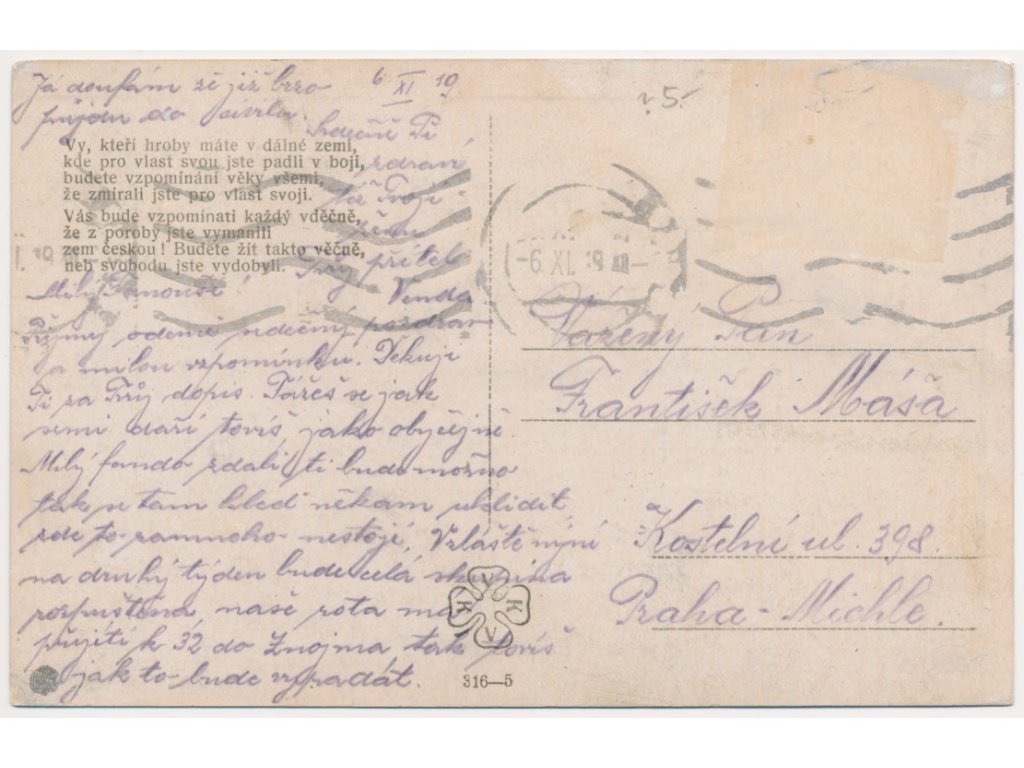 Já doufám že již brzo
přijdu do civilu.
6 XI 19
Srdečně Tě
zdraví
Tvůj
přítel
Venda
5.-
Vy, kteří hroby máte v dálné zemi,
kde pro vlast svou jste padli v boji,
budete vzpomínáni věky všemi,
že zmírali jste pro vlast svoji.
Vás bude vzpomínati každý vděčně,
že z poroby jste vymanili
zem českou! Budete žít takto věčně,
neb svobodu jste vydobyli.
Milý Fanouši!
Přijmy odemě srdečný pozdrav
a milou vzpomínku. Děkuji
Ti za Tvůj dopis. Tážeš se jak
semi daří tovíš, jako obyčejně
Milý fando zdali ti bude možno
tak se tam hleď někam uklidit,
zde to zamnoho nestojí, Vzláště nýní
na druhý týden bude celá skupina
rozpuštěná, naše rota má
přijíti k 32 do Znojma tak tovíš
jak to bude vypadát.
-6. XI. 19
Vážený Pan
František Máša
Kostelní ul. 398.
Praha-Michle.
V K K V
316—5